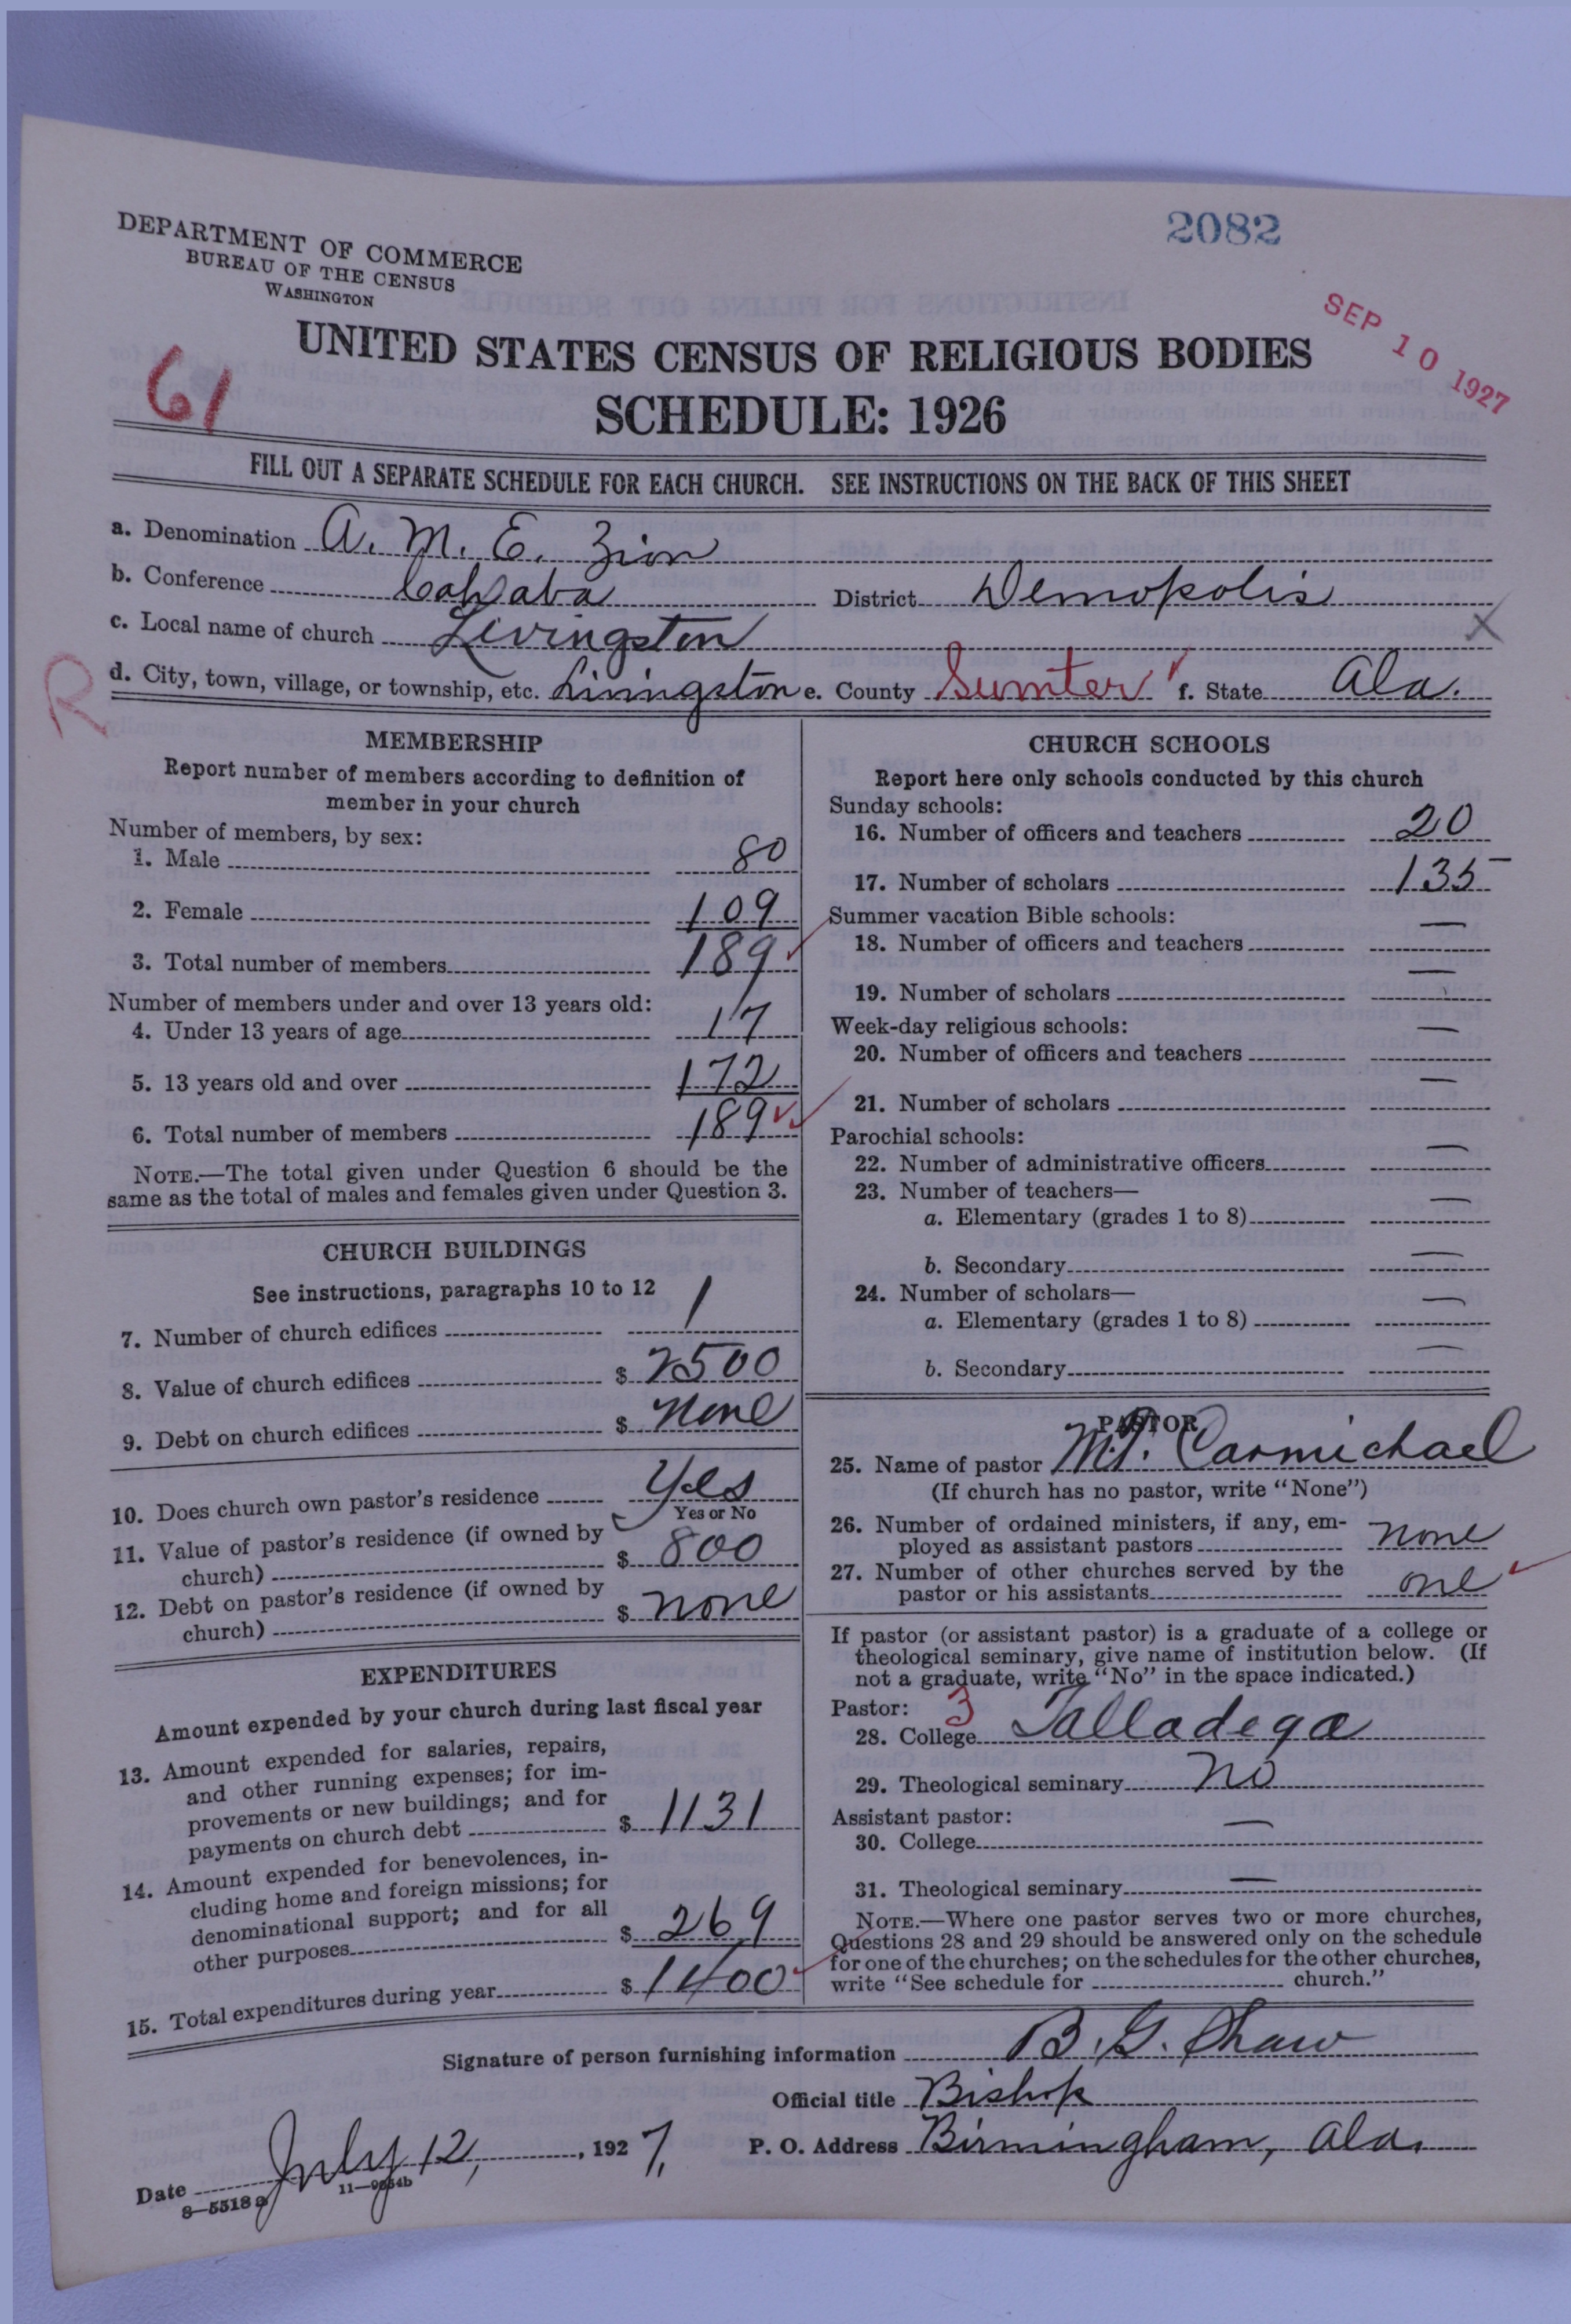 2082
DEPARTMENT OF COMMERCE
BUREAU OF THE CENSUS
WASHINGTON
SEP 10 1927
UNITED STATES CENSUS OF RELIGIOUS BODIES
61
SCHEDULE: 1926
FILL OUT A SEPARATE SCHEDULE FOR EACH CHURCH. SEE INSTRUCTIONS ON THE BACK OF THIS SHEET
a. Denomination A. M. E. Zion
b. Conference Cahaba District Demopolis
c. Local name of church Livingston X
R d. City, town, village, or township, etc. Livingston e. County Sumter f. State Ala.
MEMBERSHIP
Report number of members according to definition of
member in your church
Number of members, by sex:
1. Male 80
2. Female 109
3. Total number of members 189
Number of members under and over 13 years old:
4. Under 13 years of age 17
5. 13 years old and over 172
6. Total number of members 189
NOTE.—The total given under Question 6 should be the
same as the total of males and females given under Question 3.
CHURCH BUILDINGS
See instructions, paragraphs 10 to 12
7. Number of church edifices 1
8. Value of church edifices $ 2500
9. Debt on church edifices $ none
10. Does church own pastor's residence Yes
Yes or No
11. Value of pastor's residence (if owned by
church) $ 800
12. Debt on pastor's residence (if owned by
church) $ none
EXPENDITURES
Amount expended by your church during last fiscal year
13. Amount expended for salaries, repairs,
and other running expenses; for im-
provements or new buildings; and for
payments on church debt $ 1131
14. Amount expended for benevolences, in-
cluding home and foreign missions; for
denominational support; and for all
other purposes $ 269
15. Total expenditures during year $ 1400
CHURCH SCHOOLS
Report here only schools conducted by this church
Sunday schools:
16. Number of officers and teachers 20
17. Number of scholars 135
Summer vacation Bible schools:
18. Number of officers and teachers —
19. Number of scholars —
Week-day religious schools:
20. Number of officers and teachers —
21. Number of scholars —
Parochial schools:
22. Number of administrative officers —
23. Number of teachers—
a. Elementary (grades 1 to 8) —
b. Secondary —
24. Number of scholars—
a. Elementary (grades 1 to 8) —
b. Secondary —
PASTOR
25. Name of pastor Carmichael
(If church has no pastor, write "None")
26. Number of ordained ministers, if any, em-
ployed as assistant pastors none
27. Number of other churches served by the
pastor or his assistants one
If pastor (or assistant pastor) is a graduate of a college or
theological seminary, give name of institution below. (If
not a graduate, write "No" in the space indicated.)
Pastor: 3
28. College Talladega
29. Theological seminary No
Assistant pastor:
30. College —
31. Theological seminary —
NOTE.—Where one pastor serves two or more churches,
Questions 28 and 29 should be answered only on the schedule
for one of the churches; on the schedules for the other churches,
write "See schedule for church."
Signature of person furnishing information B. G. Shaw
Official title Bishop
Date July 12, 1927. P. O. Address Birmingham, Ala.
8—5518a 11—9054b